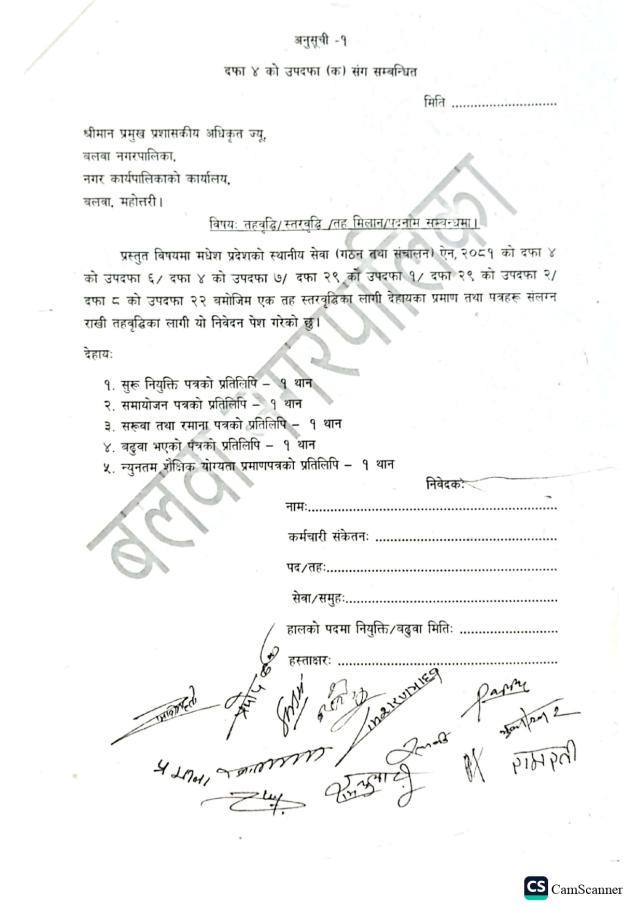 अनुसूची -१
दफा ४ को उपदफा (क) संग सम्बन्धित
मिति ............................
श्रीमान प्रमुख प्रशासकीय अधिकृत ज्यू,
बलवा नगरपालिका,
नगर कार्यपालिकाको कार्यालय,
बलवा, महोत्तरी।
विषयः तहवृद्धि/स्तरवृद्धि /तह मिलान/पदनाम सम्बन्धमा।
प्रस्तुत विषयमा मधेश प्रदेशको स्थानीय सेवा (गठन तथा संचालन) ऐन, २०८१ को दफा ४
को उपदफा ६/ दफा ४ को उपदफा ७/ दफा २९ को उपदफा १/ दफा २९ को उपदफा २/
दफा ८ को उपदफा २२ बमोजिम एक तह स्तरवृद्धिका लागी देहायका प्रमाण तथा पत्रहरू संलग्न
राखी तहवृद्धिका लागी यो निवेदन पेश गरेको छु।
देहायः
१. सुरू नियुक्ति पत्रको प्रतिलिपि – १ थान
२. समायोजन पत्रको प्रतिलिपि – १ थान
३. सरूवा तथा रमाना पत्रको प्रतिलिपि – १ थान
४. बढुवा भएको पत्रको प्रतिलिपि – १ थान
५. न्युनतम शैक्षिक योग्यता प्रमाणपत्रको प्रतिलिपि – १ थान
निवेदकः
नामः..................................................................
कर्मचारी संकेतनः ................................................
पद/तहः.............................................................
सेवा/समुहः........................................................
हालको पदमा नियुक्ति/बढुवा मितिः ..........................
हस्ताक्षरः ..........................................................
बलवा नगरपालिका
रामरती
CS CamScanner